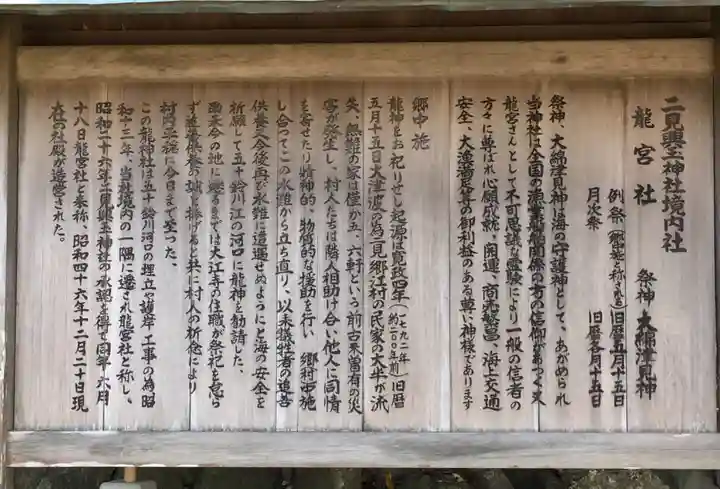 二見興玉神社境内社
龍宮社　祭神 大綿津見神
例祭(郷中施と称さる)旧暦五月十五日
月次祭　旧暦各月十五日
祭神、大綿津見神は海の守護神として、あがめられ
当神社は全国の漁業船舶関係の方の信仰があつく又
龍宮さんとして不可思議な霊験により一般の信者の
方々に尊ばれ心願成就・開運・商売繁昌・海上交通
安全、大漁満足等の御利益のある尊い神様であります
郷中施
龍神をお祀りせし起源は寛政四年(一七九二年)(約二〇〇年前)旧暦
五月十五日大津波の為二見郷江村の民家の大半が流
失、無難の家は僅か五、六軒という前古未曽有の災
害が発生し、村人たちは隣人相助け合い他人に同情
を寄せたり精神的、物質的な援助を行い 郷村中施
し合ってこの水難から立ち直り、以来犠牲者の追善
供養と今後再び水難に遭遇せぬようにと海の安全を
祈願して五十鈴川江の河口に龍神を勧請した、
の地に遷るまでは大江寺の住職が祭祀を怠ら
ず追善供養の誠を捧げると共に村人の祈祷により
村内平穏に今日まで至った、
この龍神社は五十鈴川河口の埋立や護岸工事の為昭
和十三年、当社境内の一隅に遷され龍宮社と称し、
昭和二十六年二見興玉神社の承認を得て同年六月
十八日龍宮社と奉称、昭和四十六年十二月二十日現
在の社殿が造営された。